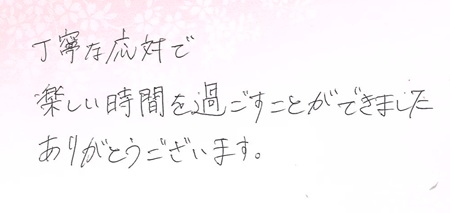 丁寧な応対で
楽しい時間を過ごすことができました
ありがとうございます。